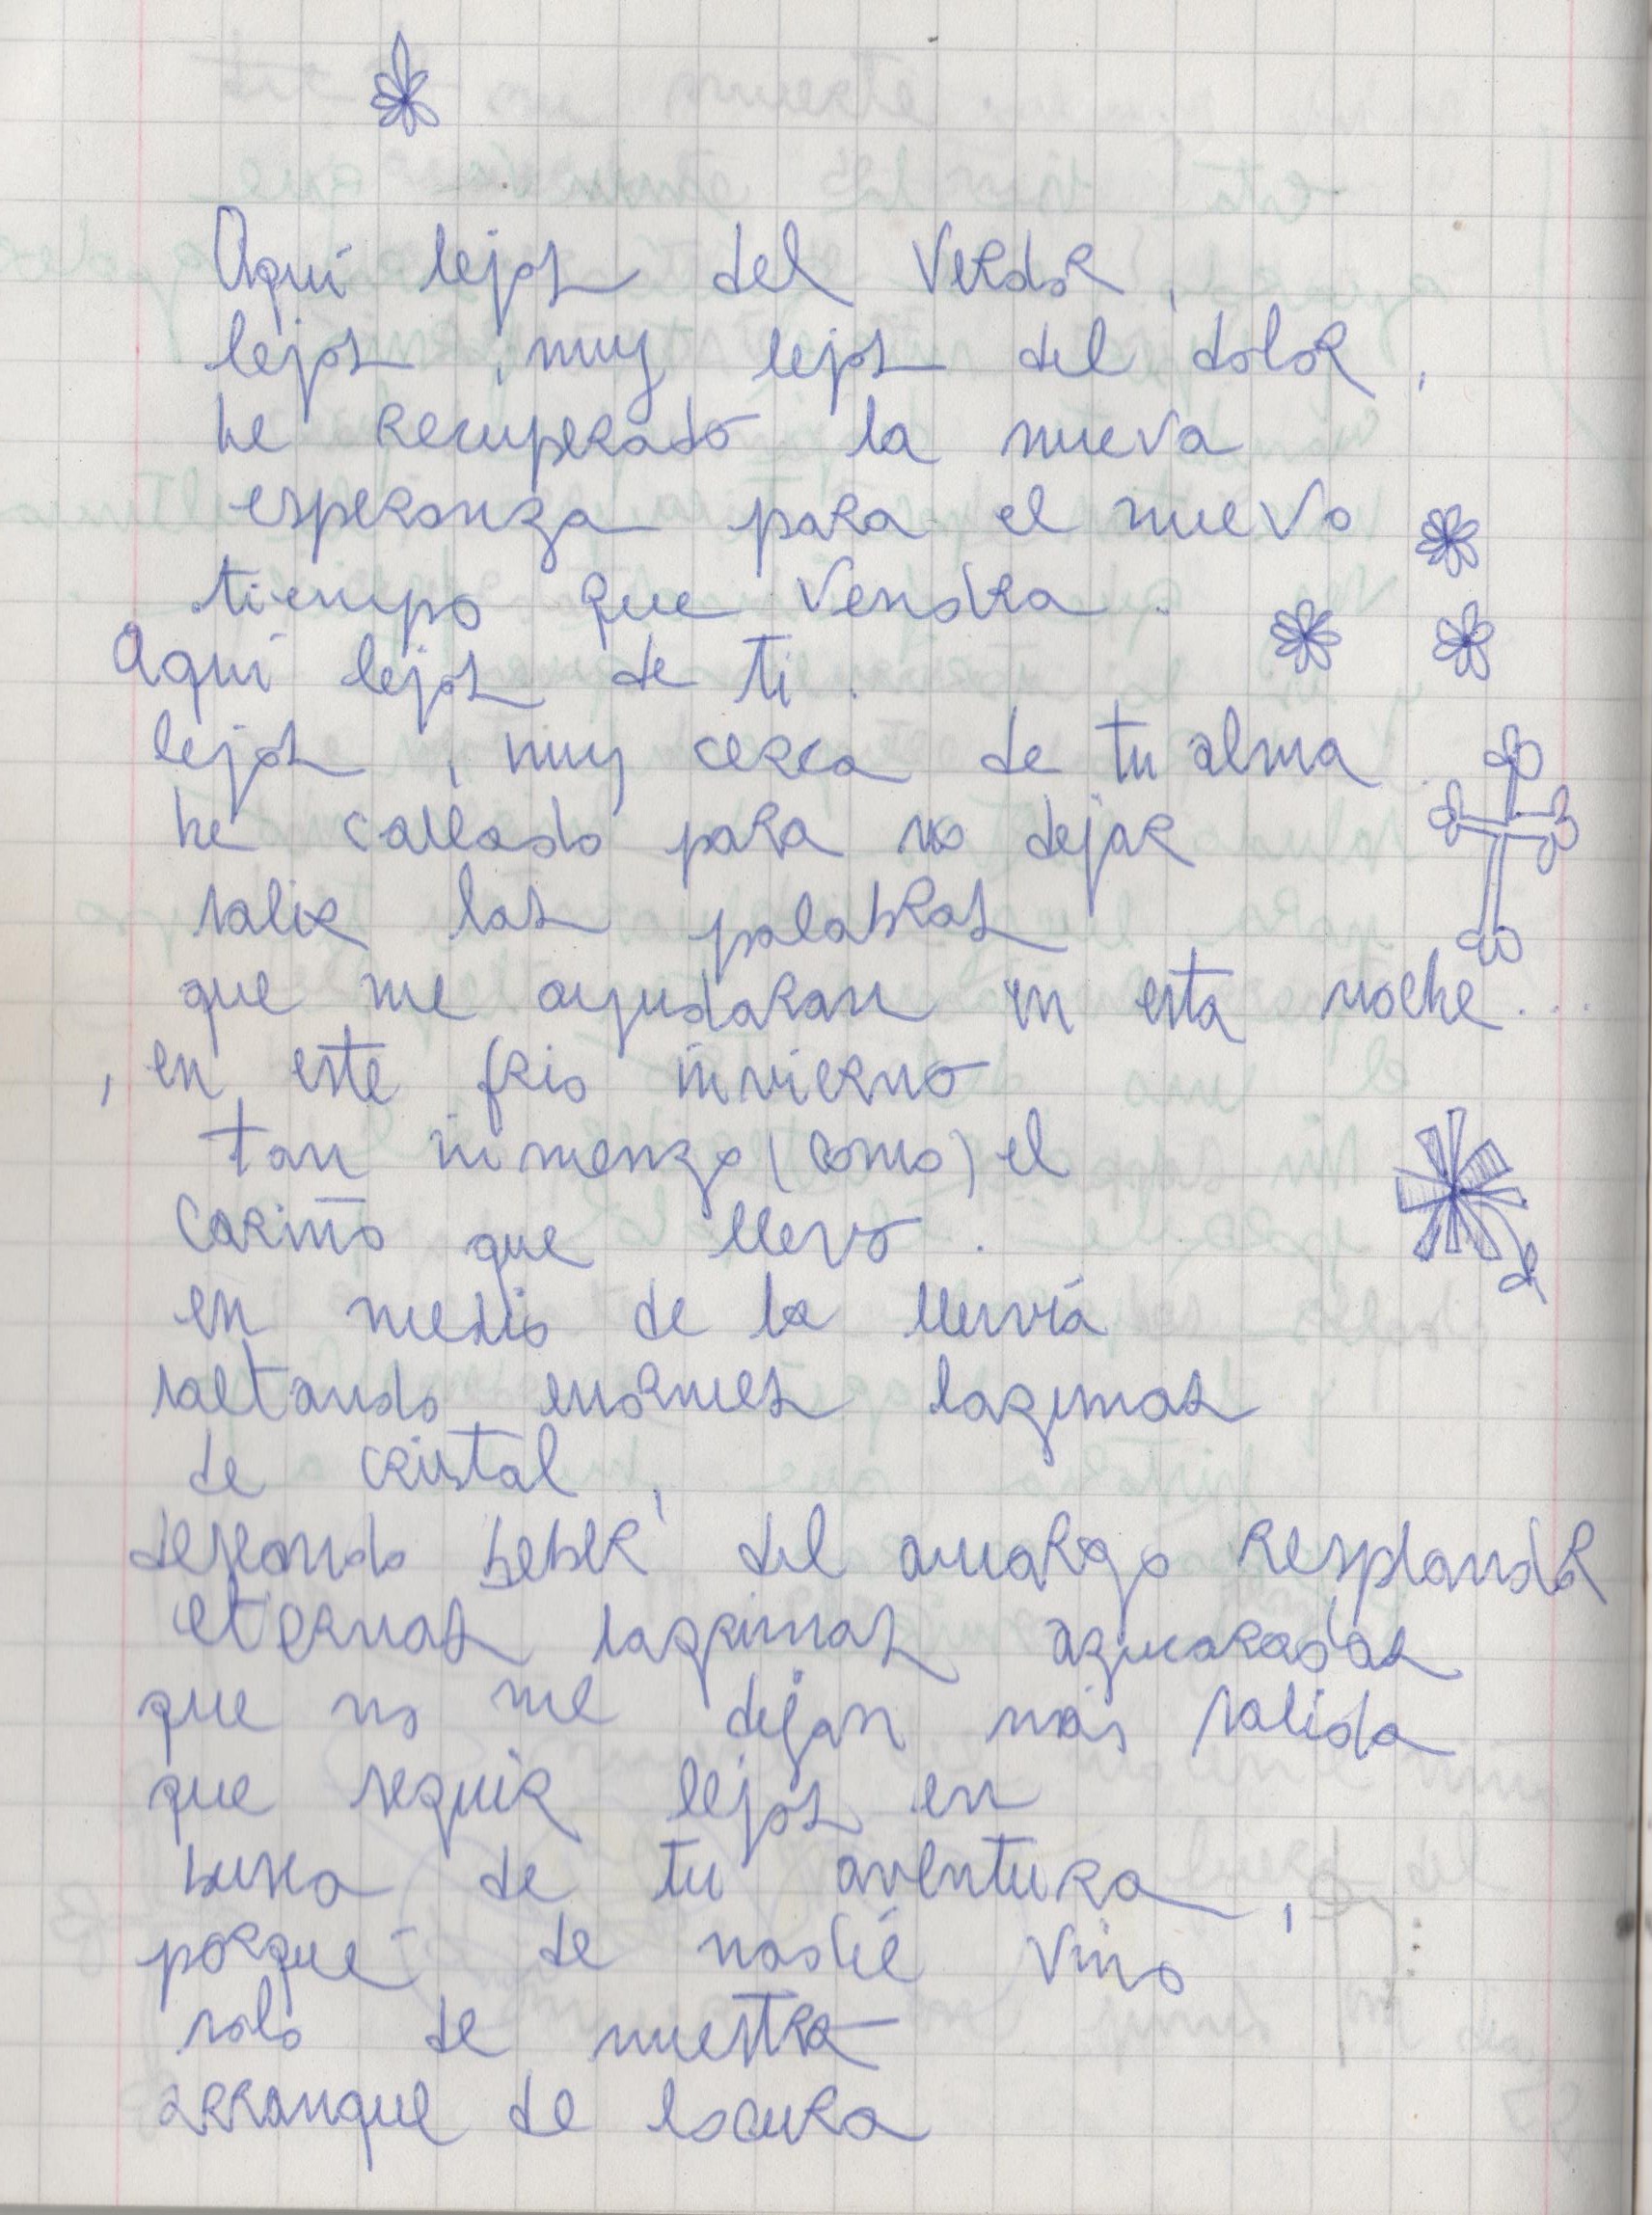 Aquí lejos del Verdor,
lejos, muy lejos del dolor,
he recuperado la nueva
esperanza para el nuevo
tiempo que Vendra.
Aquí lejos de ti.
lejos, muy cerca de tu alma
he callado para no dejar
salir las palabras
que me ayudaran en esta noche...
, en este frio invierno
tan inmenzo (como) el
Cariño que llevo.
en medio de la lluviá
saltando enormes lagrimas
de cristal,
deseando beber del amargo Resplandor
eternas lagrimas azucaradas
que no me dejan más salida
que seguir lejos en
busca de tu aventura,
porqué de nadie vino
solo de nuestra
arranque de locura